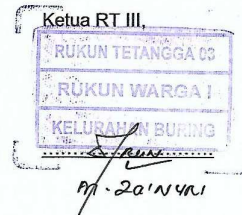 Ketua RT III,
RUKUN TETANGGA 03
RUKUN WARGA I
KELURAHAN BURING
M. ZAINURI